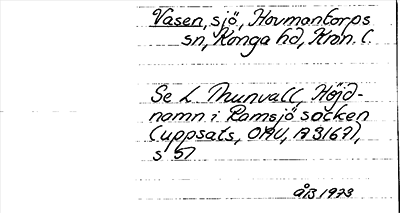 Vasen, sjö, Hovmantorps
sn, Konga hd, Kron. l.
Se L. Thunvall, Höjd-
namn i Ramsjö socken
(uppsats, OAU, A3167),
s 57
ÅB 1973